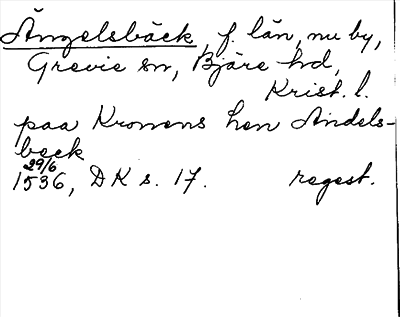 Ängelsbäck, f. län, nu by,
Grevie sn, Bjäre hd,
Krist. l.
paa Kronens hen Andels-
beck
29/6
1536, DK s. 17. regest.